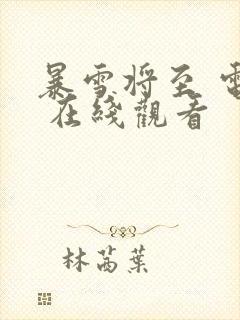 暴雪将至 電
在綫觀看
林茵葉